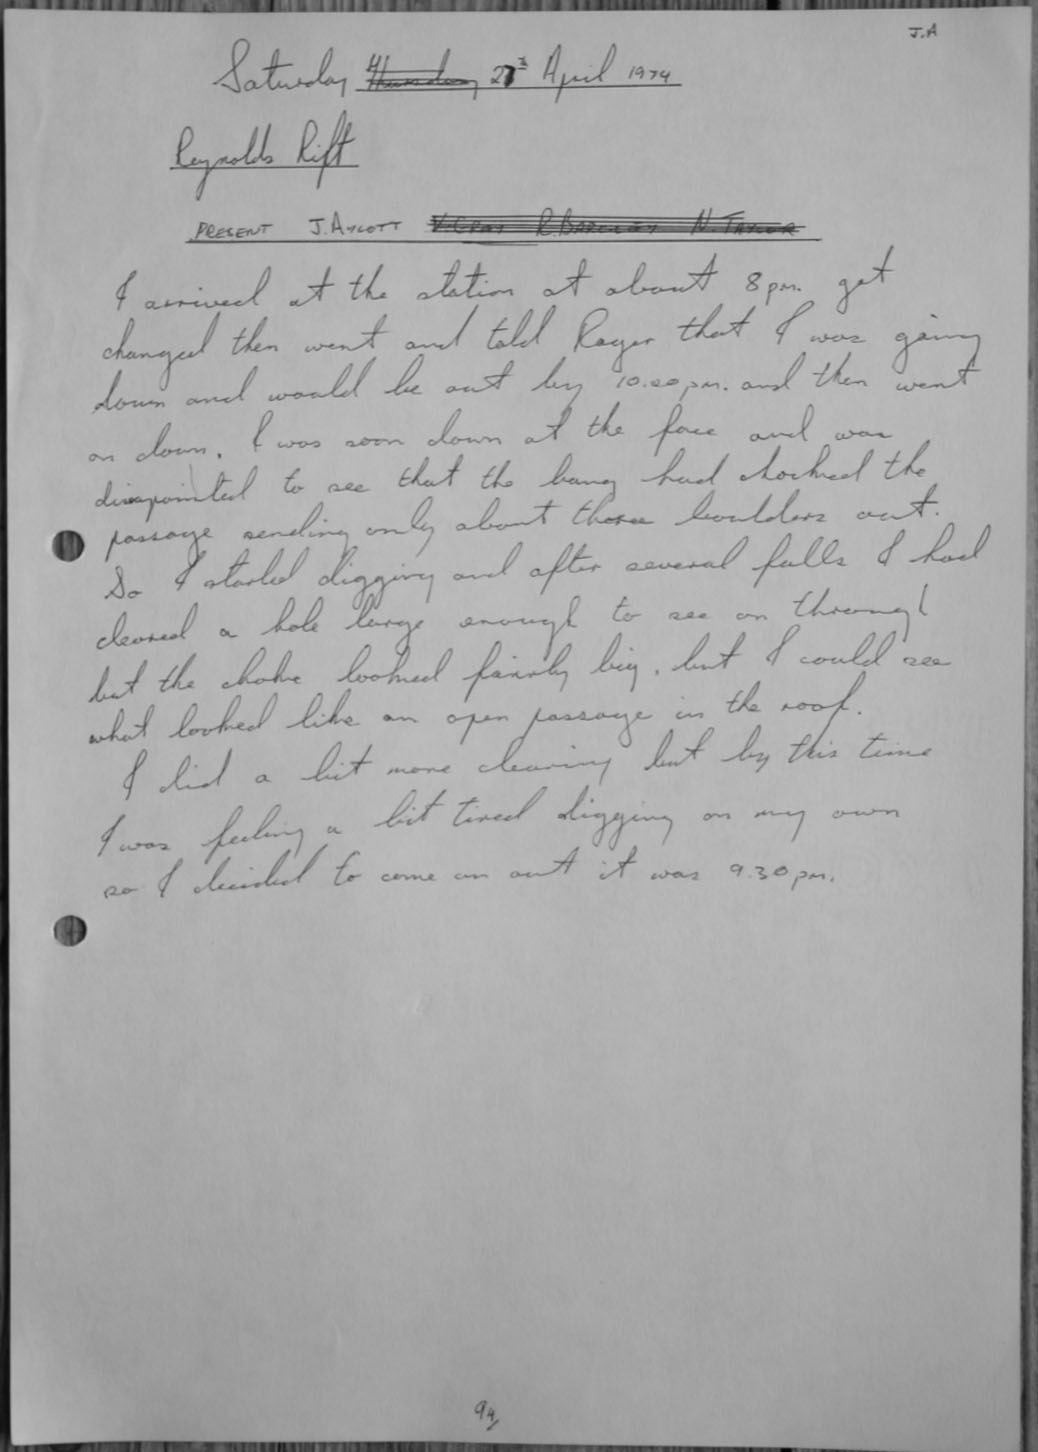 J.A
Saturday Thursday 27th April 1974
Reynolds Rift
PRESENT J. AYLOTT V. GRAY R. BARCLAY N. TAYLOR
I arrived at the station at about 8 pm. got
changed then went and told Roger that I was going
down and would be out by 10.00 pm. and then went
on down. I was soon down at the face and was
disapointed to see that the bang had chocked the
passage sending only about three boulders out.
So I started digging and after several falls I had
cleared a hole large enough to see on through
but the choke looked fairly big, but I could see
what looked like an open passage in the roof.
I did a bit more clearing but by this time
I was feeling a bit tired digging on my own
so I decided to come on out it was 9.30 pm.
94